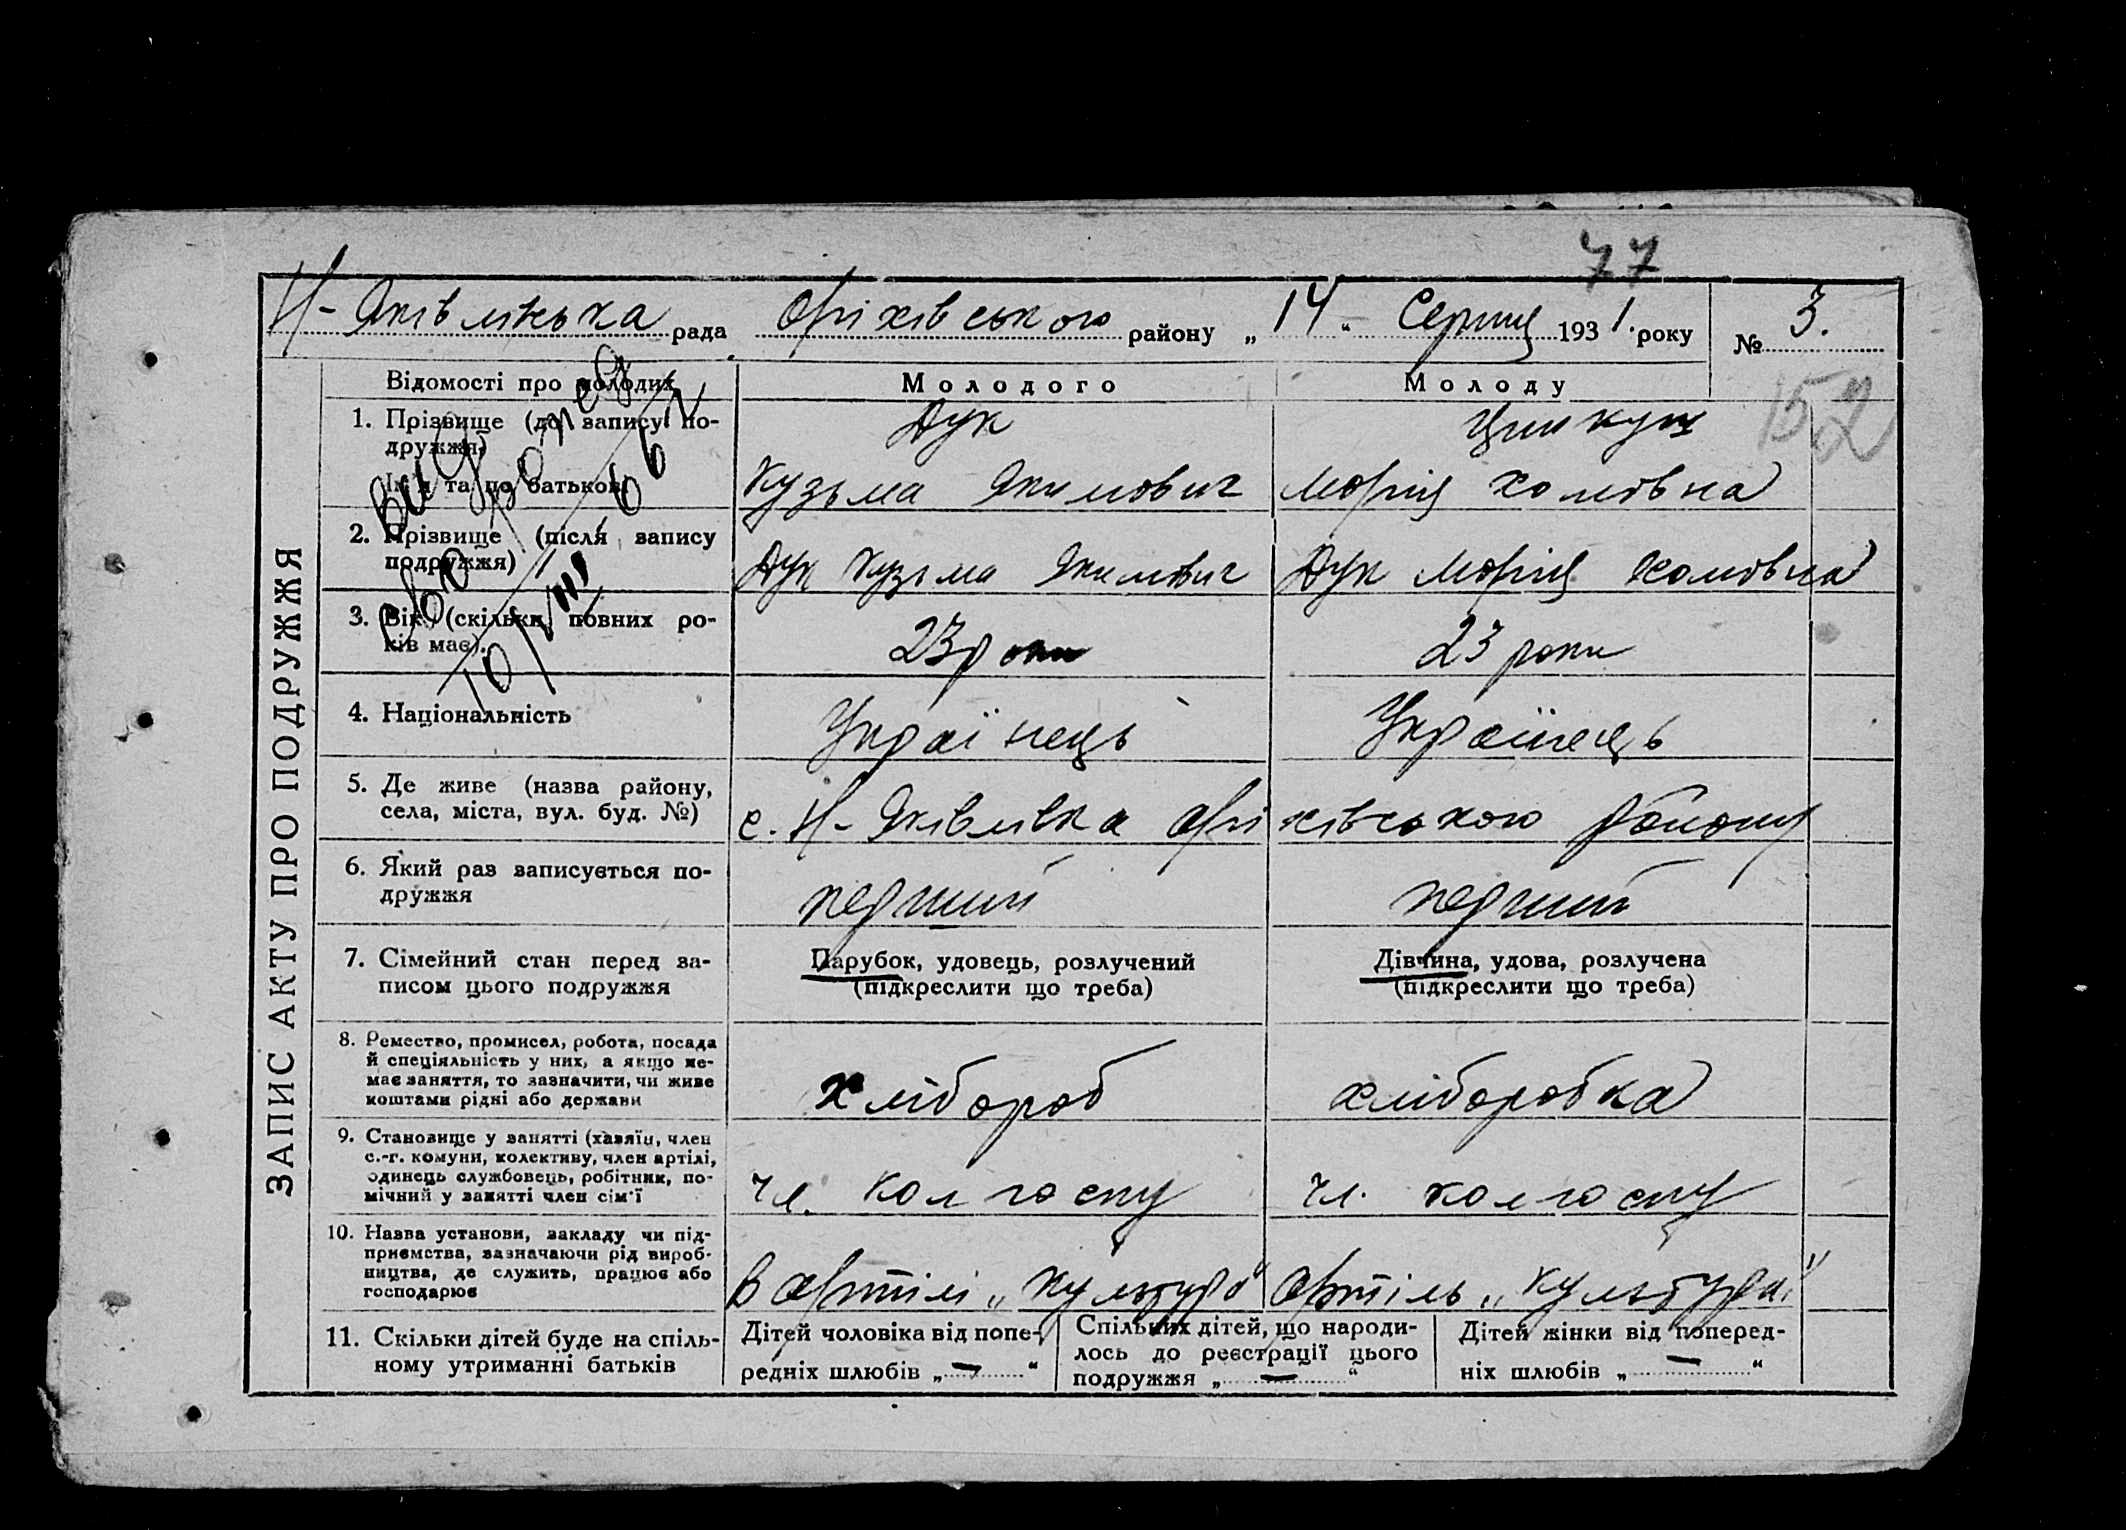 77
Н-Яківлівська рада Оріхівського району „14“ Серпня 1931. року № 3.
152
ЗАПИС АКТУ ПРО ПОДРУЖЖЯ
Відомості про молодих
Молодого
Молоду
1. Прізвище (до запису по-
дружжя)
Ім'я та по батькові
Дук
Кузьма Якимович
Марія Хомівна
2. Прізвище (після запису
подружжя)
Дук Кузьма Якимович
Дук Марія Хомівна
3. Вік (скільки повних ро-
ків має).
23 роки
23 роки
4. Національність
Українець
Українець
5. Де живе (назва району,
села, міста, вул. буд. №)
с. Н-Яківлівка Оріхівського району
6. Який раз записується по-
дружжя
перший
перший
7. Сімейний стан перед за-
писом цього подружжя
Парубок, удовець, розлучений
(підкреслити що треба)
Дівчина, удова, розлучена
(підкреслити що треба)
8. Ремество, промисел, робота, посада
й спеціяльність у них, а якщо не-
має заняття, то зазначити, чи живе
коштами рідні або держави
хлібороб
хліборобка
9. Становище у занятті (хазяїн, член
с.-г. комуни, колективу, член артілі,
одинець службовець, робітник, по-
мічний у занятті член сім'ї
чл. колгоспу
чл. колгоспу
10. Назва установи, закладу чи під-
приємства, зазначаючи рід вироб-
ництва, де служить, працює або
господарює
В артілі „Культура“
Артіль „Культура“
11. Скільки дітей буде на спіль-
ному утриманні батьків
Дітей чоловіка від попе-
редніх шлюбів „—“
Спільних дітей, що народи-
лось до реєстрації цього
подружжя „—“
Дітей жінки від поперед-
ніх шлюбів „—“